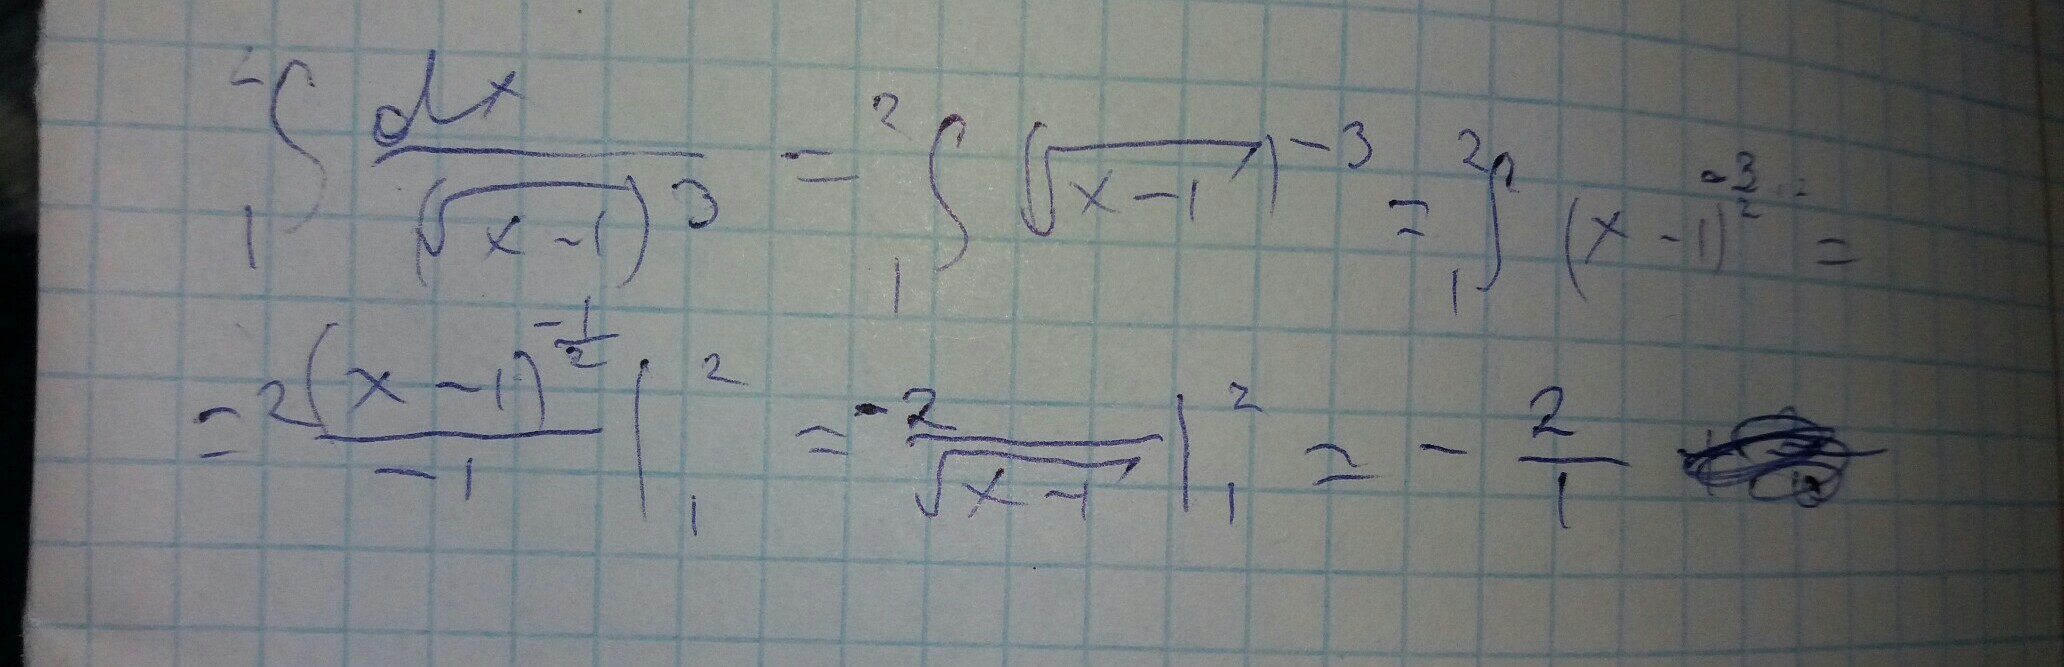 ²∫₁ dx/(√(x-1))³ = ²∫₁ (√(x-1))⁻³ = ²∫₁ (x-1)^(-3/2) =
= 2(x-1)^(-1/2)/-1 |₁² = -2/√(x-1) |₁² = -2/1